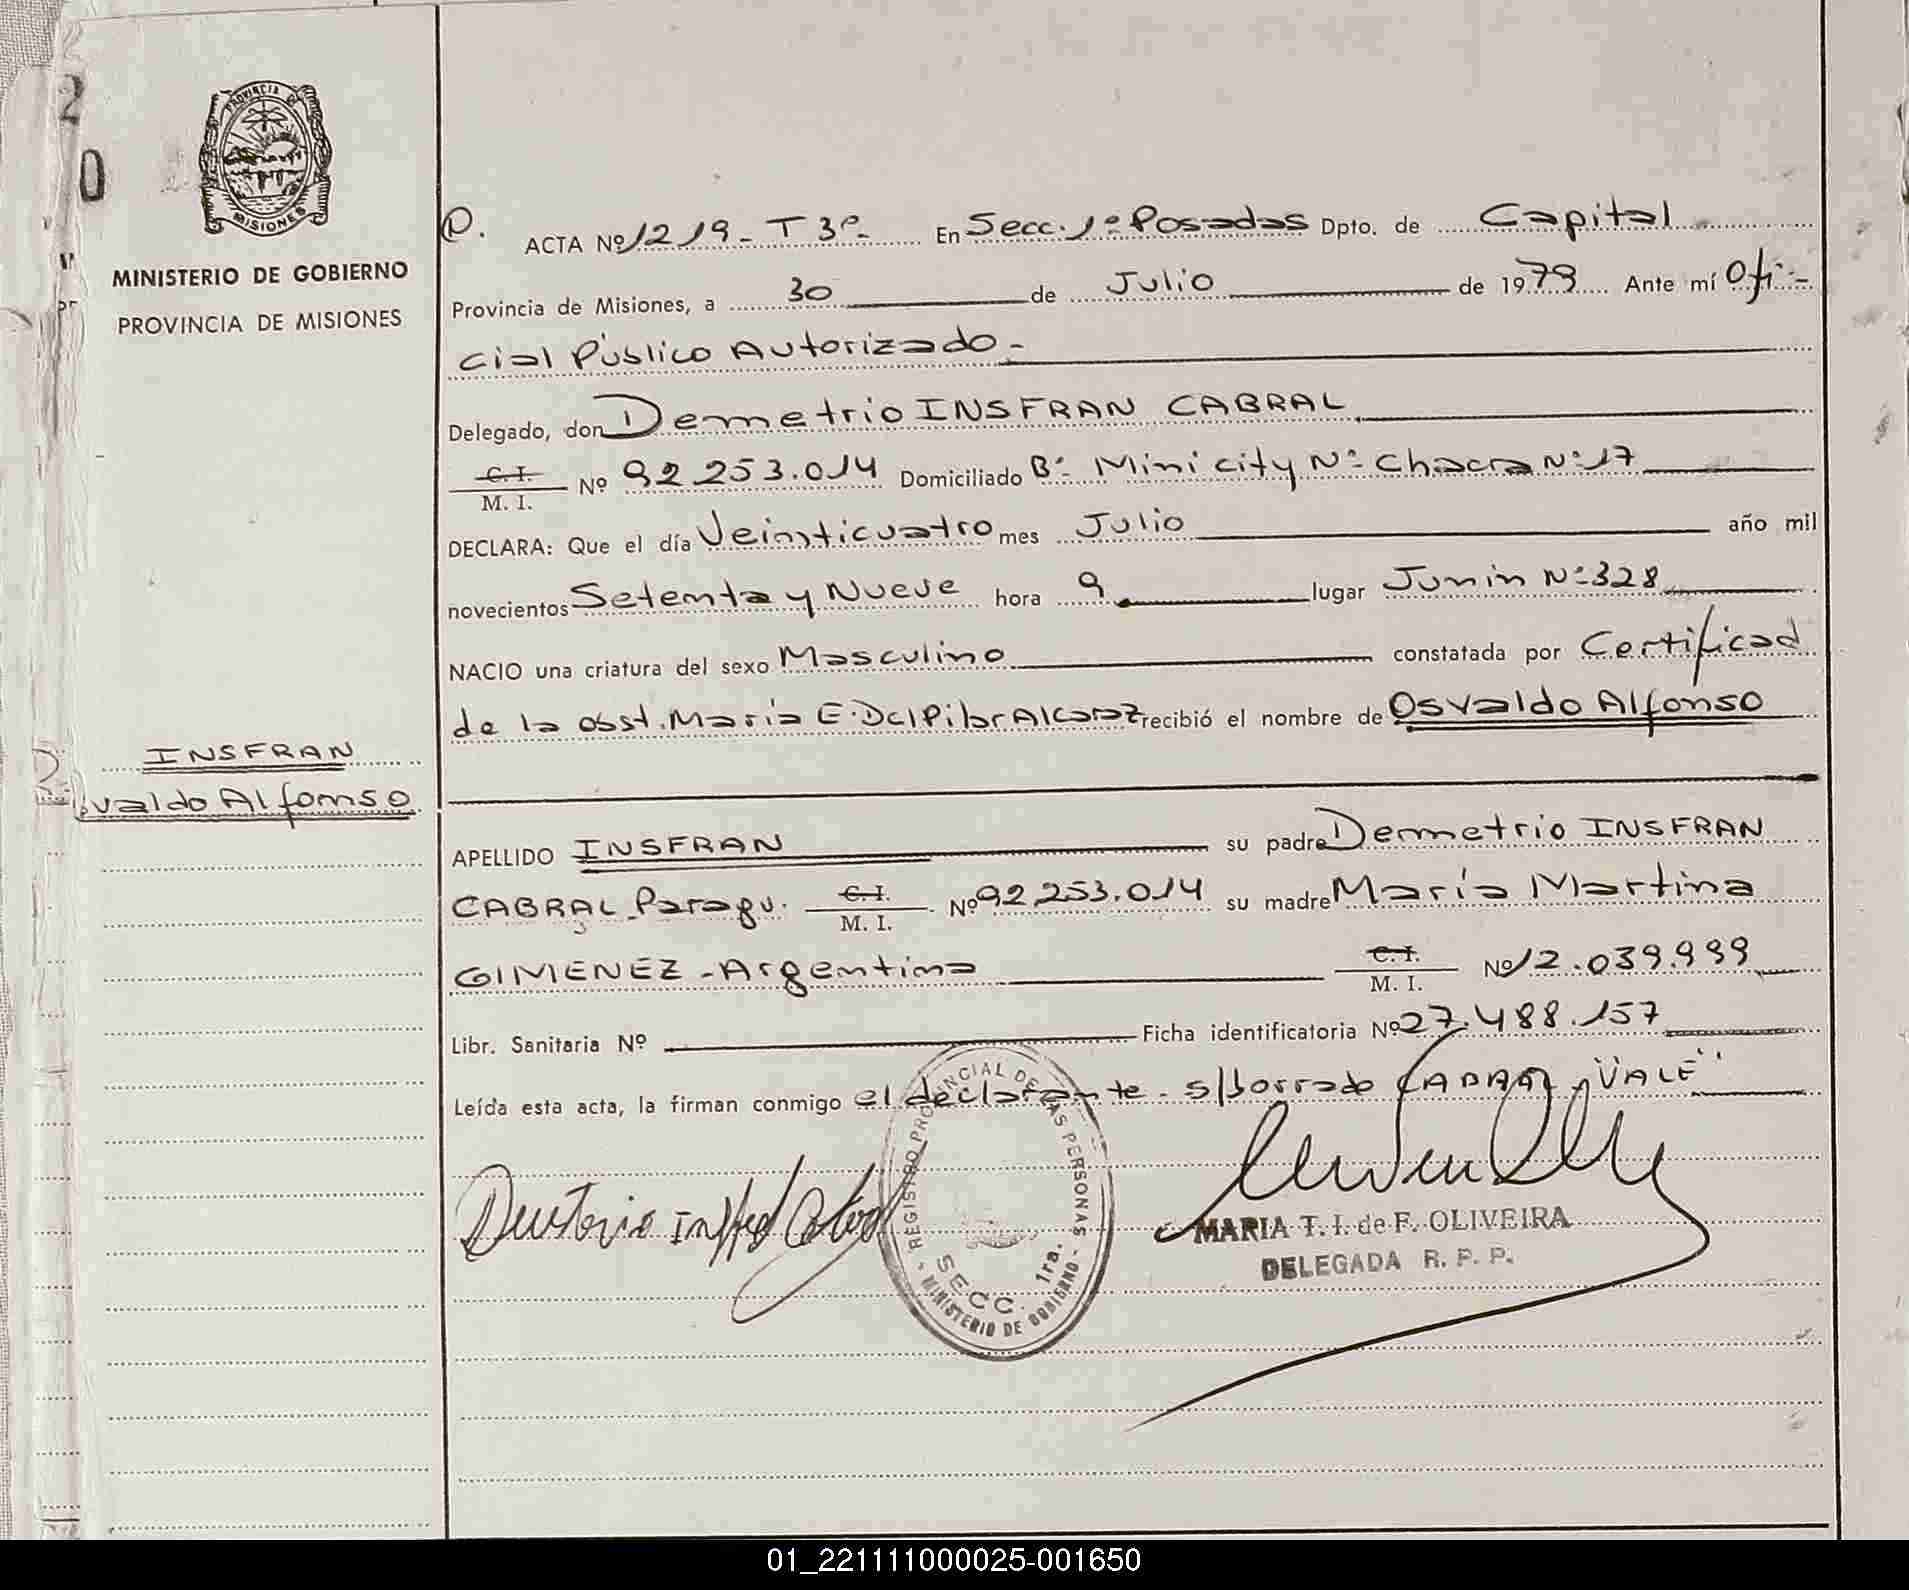 2
0
PROVINCIA DE
MISIONES
MINISTERIO DE GOBIERNO
PROVINCIA DE MISIONES
INSFRAN
svaldo Alfonso
P. ACTA Nº 1219 - T 3º - En Secc. 1º Posadas Dpto. de Capital
Provincia de Misiones, a 30 de Julio de 1979 Ante mí Ofi-
cial Público Autorizado -
Delegado, don Demetrio INSFRAN CABRAL
C. I.
M. I. Nº 92 253.014 Domiciliado Bº Mini city Nº Chacra Nº 17
DECLARA: Que el día Veinticuatro mes Julio año mil
novecientos Setenta y Nueve hora 9 lugar Junin Nº 328
NACIO una criatura del sexo Masculino constatada por Certificad
de la obst. María E. Del Pilar Alcaraz recibió el nombre de Osvaldo Alfonso
APELLIDO INSFRAN su padre Demetrio INSFRAN
CABRAL - Paragu. C. I. M. I. Nº 92 253.014 su madre María Martina
GIMENEZ - Argentina C. I. M. I. Nº 12.039.999
Libr. Sanitaria Nº Ficha identificatoria Nº 27.488.157
Leída esta acta, la firman conmigo el declarante - s/borrado CABRAL "VALE"
REGISTRO PROVINCIAL DE LAS PERSONAS
SECC. 1ra.
- MINISTERIO DE GOBIERNO -
MARIA T. I. de F. OLIVEIRA
DELEGADA R. P. P.
01_221111000025-001650